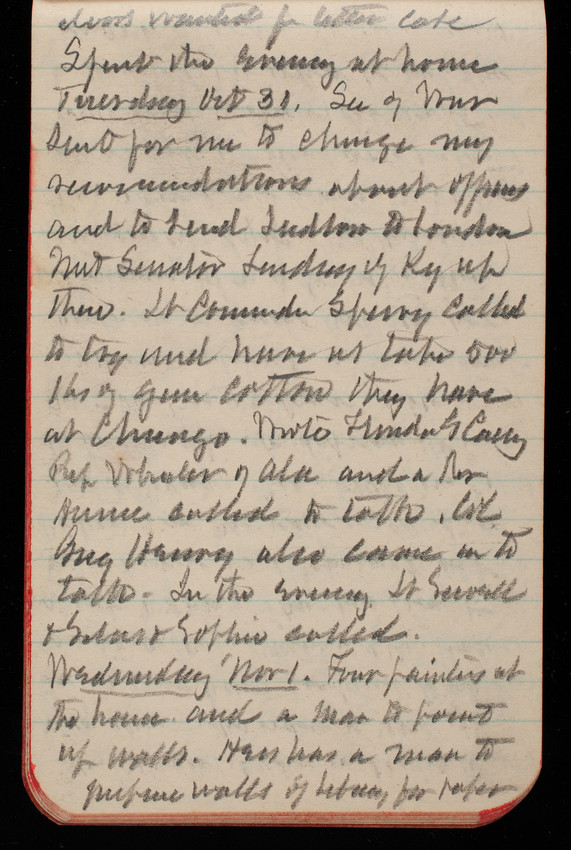 wanted for letter
Spent the evening at home
Tuesday Oct 31. Sec of War
sent for me to change my
recommendations about officers
and to send Ludlow to London
Met Senator Lindsay of Ky up
there. Lt Commander Sperry called
to try and have us take 500
lbs of gun cotton they have
at Chicago. Wrote Casey
Rep Wheeler of Ala and a Rev
called to talk. Col
Guy Henry also came in to
talk. In the evening Lt Sewell
& & Sophie called.
Wednesday Nov 1. Four painters at
the house and a man to point
up walls. Hess has a man to
prepare walls of library for paper